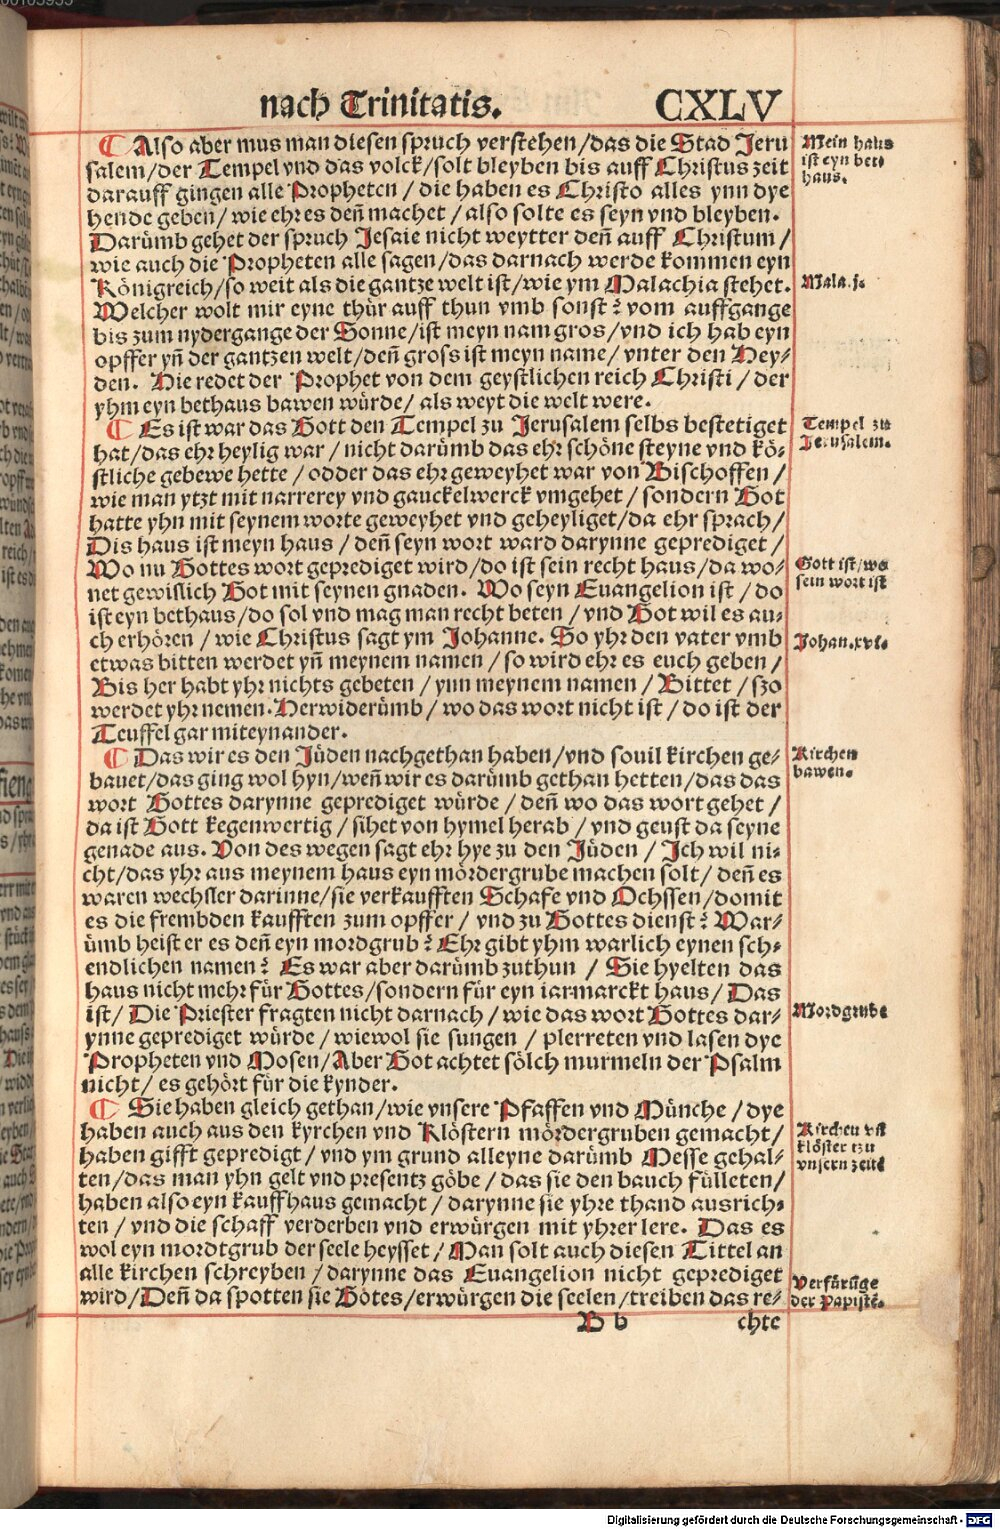 nach Trinitatis. CXLV
Also aber mus man diesen spruch verstehen/das die Stad Jeru
salem/der Tempel vnd das volck/solt bleyben bis auff Christus zeit
darauff gingen alle Propheten / die haben es Christo alles ynn dye
hende geben/ wie ehr es deñ machet / also solte es seyn vnd bleyben.
Darümb gehet der spruch Jesaie nicht weytter deñ auff Christum /
wie auch die Propheten alle sagen/das darnach werde kommen eyn
Königreich/so weit als die gantze welt ist/wie ym Malachia stehet.
Welcher wolt mir eyne thür auff thun vmb sonst? vom auffgange
bis zum nydergange der Sonne/ist meyn nam gros/vnd ich hab eyn
opffer yñ der gantzen welt/deñ gross ist meyn name/ vnter den Hey/
den. Hie redet der Prophet von dem geystlichen reich Christi / der
yhm eyn bethaus bawen würde/ als weyt die welt were.
Es ist war das Gott den Tempel zu Jerusalem selbs bestetiget
hat/das ehr heylig war / nicht darümb das ehr schöne steyne vnd kö/
stliche gebewe hette / odder das ehr geweyhet war von Bischoffen/
wie man ytzt mit narrerey vnd gauckelwerck vmgehet / sondern Got
hatte yhn mit seynem worte geweyhet vnd geheyliget/da ehr sprach/
Dis haus ist meyn haus / deñ seyn wort ward darynne geprediget /
Wo nu Gottes wort geprediget wird/do ist sein recht haus/da wo/
net gewislich Got mit seynen gnaden. Wo seyn Euangelion ist / do
ist eyn bethaus/do sol vnd mag man recht beten / vnd Got wil es au/
ch erhören / wie Christus sagt ym Johanne. So yhr den vater vmb
etwas bitten werdet yñ meynem namen / so wird ehr es euch geben/
Bis her habt yhr nichts gebeten / ynn meynem namen / Bittet / szo
werdet yhr nemen. Herwiderümb / wo das wort nicht ist / do ist der
Teuffel gar miteynander.
Das wir es den Jüden nachgethan haben/vnd souil kirchen ge/
bauet/das ging wol hyn/weñ wir es darümb gethan hetten/das das
wort Gottes darynne geprediget würde / deñ wo das wort gehet /
da ist Gott kegenwertig / sihet von hymel herab / vnd geust da seyne
genade aus. Von des wegen sagt ehr hye zu den Jüden / Ich wil ni/
cht/das yhr aus meynem haus eyn mördergrube machen solt/ deñ es
waren wechsller darinne/sie verkaufften Schafe vnd Ochssen/domit
es die frembden kaufften zum opffer / vnd zu Gottes dienst? War/
ümb heist er es deñ eyn mordgrub? Ehr gibt yhm warlich eynen sch/
endlichen namen? Es war aber darümb zuthun / Sie hyelten das
haus nicht mehr für Gottes/sondern für eyn iarmarckt haus/ Das
ist/ Die Priester fragten nicht darnach/ wie das wort Gottes dar/
ynne geprediget würde/ wiewol sie sungen / plerreten vnd lasen dye
Propheten vnd Mosen/Aber Got achtet sölch murmeln der Psalm
nicht/ es gehört für die kynder.
Sie haben gleich gethan/wie vnsere Pfaffen vnd Münche/ dye
haben auch aus den kyrchen vnd Klöstern mördergruben gemacht/
haben gifft gepredigt/ vnd ym grund alleyne darümb Messe gehal/
ten/das man yhn gelt vnd presentz göbe/das sie den bauch fülleten/
haben also eyn kauffhaus gemacht / darynne sie yhre thand ausrich/
ten / vnd die schaff verderben vnd erwürgen mit yhrer lere. Das es
wol eyn mordtgrub der seele heysset/ Man solt auch diesen Tittel an
alle kirchen schreyben / darynne das Euangelion nicht geprediget
wird/Deñ da spotten sie Gotes/erwürgen die seelen/treiben das re/
B b chte
Mein haus
ist eyn bett
haus.
Mala.j.
Tempel zu
Jerusalem.
Gott ist/wo
sein wort ist
Johan.xvi.
Kirchen
bawen.
Mordgrube
Kirchen vñ
klöster tzu
vnsern zeitē
Verfürūge
der Papistē.
Digitalisierung gefördert durch die Deutsche Forschungsgemeinschaft - DFG